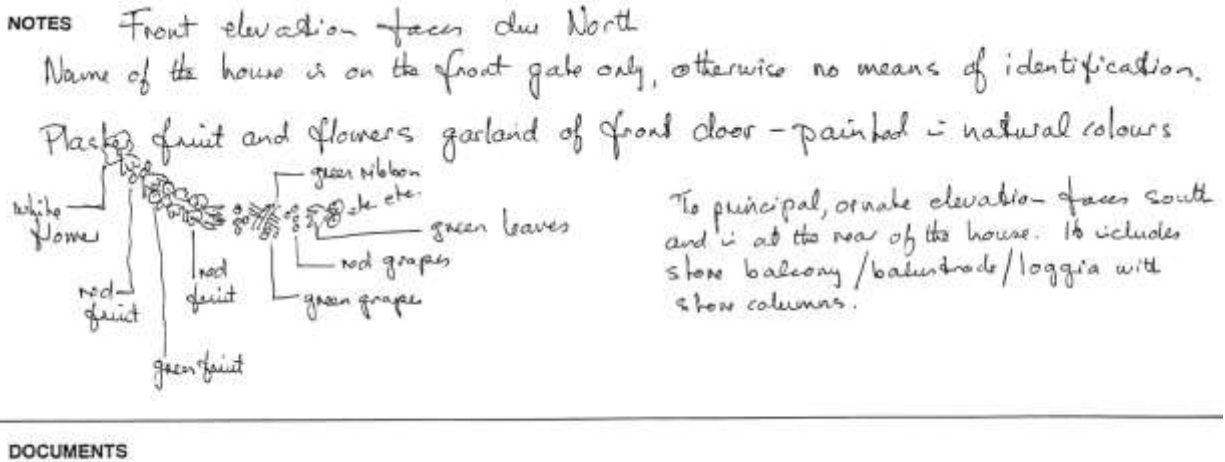 NOTES Front elevation faces due North
Name of the house is on the front gate only, otherwise no means of identification.
Plaster fruit and flowers garland of front door - painted in natural colours
green ribbon
etc etc.
white
flower
green leaves
red grapes
red
fruit
red
fruit
green grapes
green fruit
The principal, ornate elevation faces south
and is at the rear of the house. It includes
stone balcony/balustrade/loggia with
stone columns.
DOCUMENTS